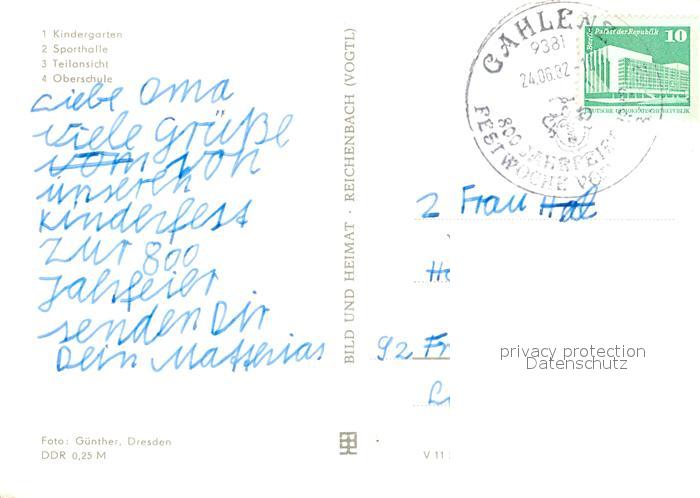 1 Kindergarten
2 Sporthalle
3 Teilansicht
4 Oberschule
Liebe Oma
viele Grüße
vom von
unseren
Kinderfest
zur 800
Jahrfeier
senden Dir
Dein Matthias
Foto: Günther, Dresden
DDR 0,25 M
BILD UND HEIMAT · REICHENBACH (VOGTL)
V 11
GAHLENZ
9381
24.06.82
800 JAHRFEIER
FESTWOCHE VOM
Berlin, Palast der Republik
10
DEUTSCHE DEMOKRATISCHE REPUBLIK
2 Frau
92 Fr
privacy protection
Datenschutz